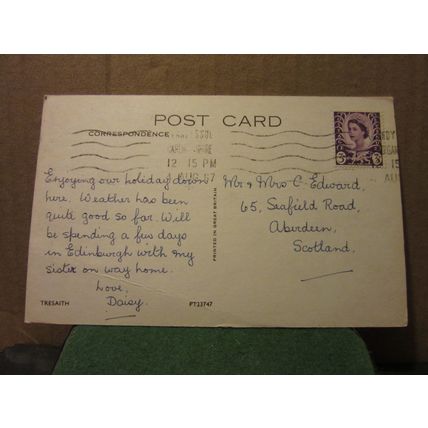 POST CARD
CORRESPONDENCE
12 15 PM
Enjoying our holiday down
here. Weather has been
quite good so far. Will
be spending a few days
in Edinburgh with my
sister on way home.
Love,
Daisy.
PRINTED IN GREAT BRITAIN
Mr & Mrs C. Edward,
65, Seafield Road,
Aberdeen,
Scotland.
TRESAITH
PT23747